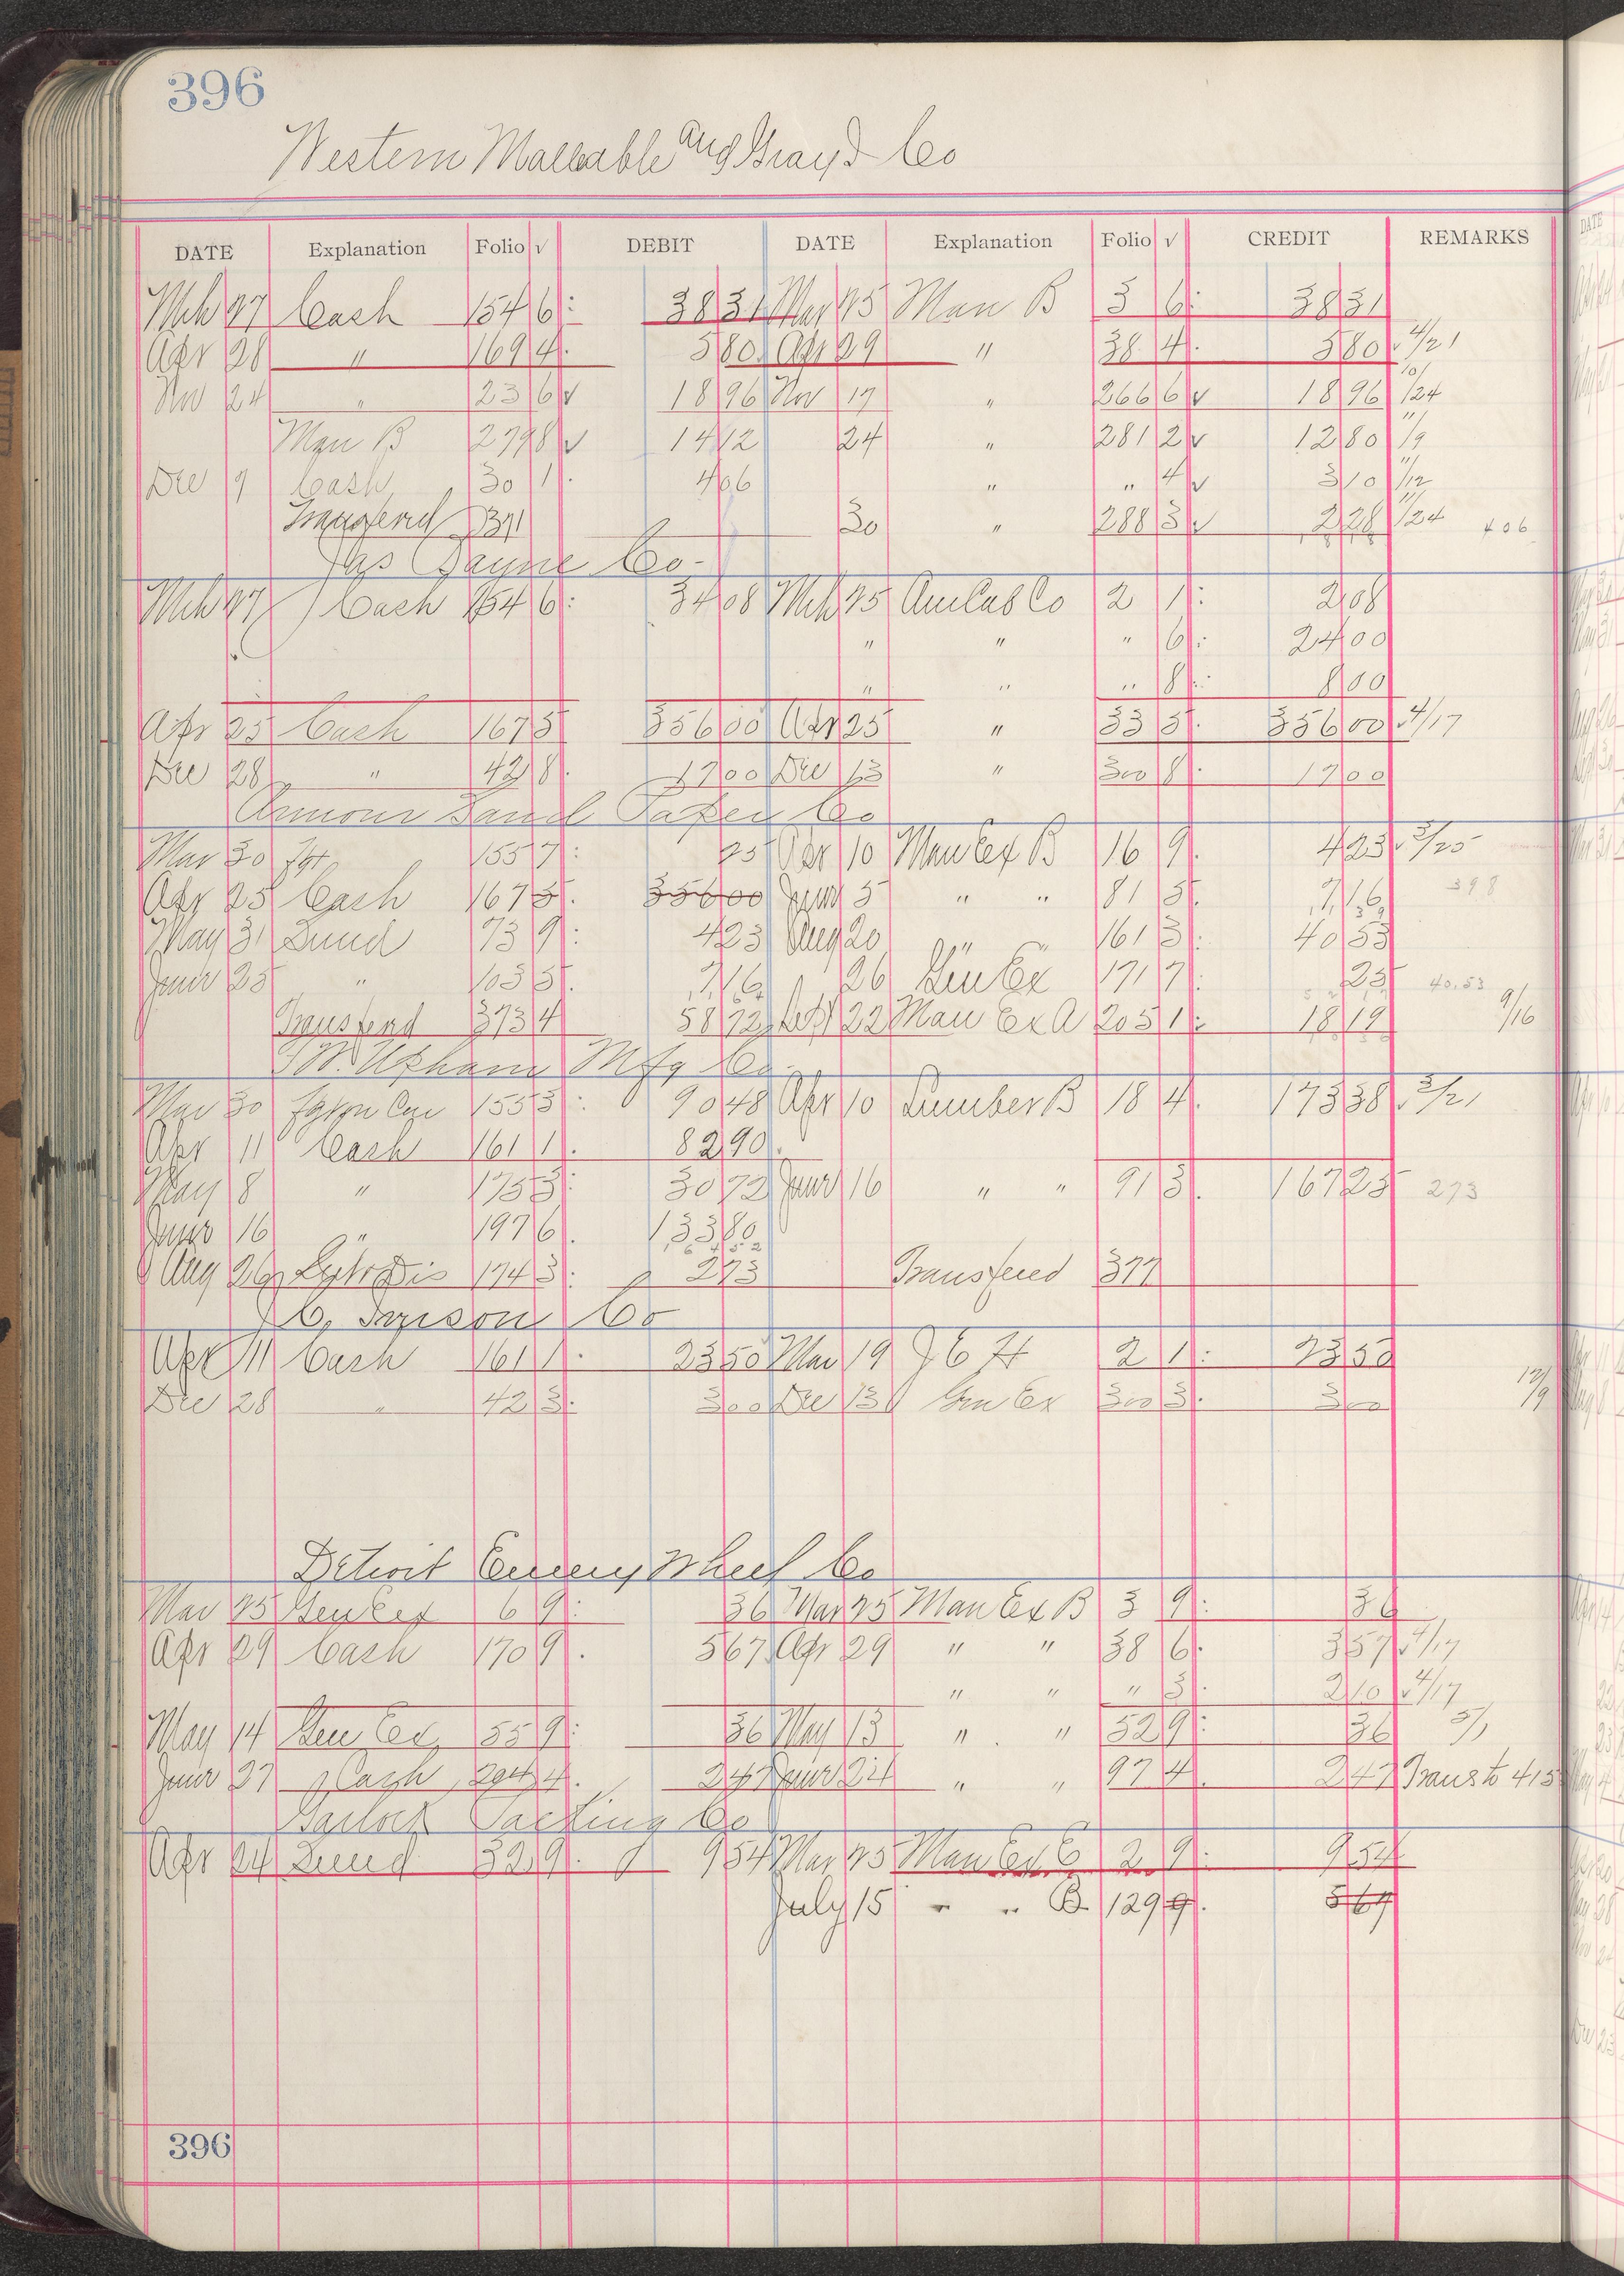 396
Western Malleable and Gray I Co
DATE Explanation Folio √ DEBIT DATE Explanation Folio √ CREDIT REMARKS
Mch 27 Cash 154 6 : 38 31 Mar 25 Man B 3 6 : 38 31
Apr 28 " 169 4 . 5 80 Apr 29 " 38 4 . 5 80 √ 4/21
Nov 24 " 23 6 √ 18 96 Nov 17 " 266 6 √ 18 96 10/24
Man B 279 8 √ 14 12 24 " 281 2 √ 12 80 11/9
Dec 9 Cash 30 1 . 4 06 " " 4 √ 3 10 11/12
Transferred 371 30 " 288 3 √ 2 28 11/24 4 06
Jas Jayne Co
Mch 27 Cash 154 6 : 34 08 Mch 25 Am Cas Co 2 1 : 2 08
" " " 6 : 24 00
" " " 8 : 8 00
Apr 25 Cash 167 5 356 00 Apr 25 " 33 5 . 356 00 √ 4/17
Dec 28 " 42 8 . 17 00 Dec 13 " 300 8 . 17 00
Armour Sand Paper Co
Mar 30 Fgt 155 7 : 25 Apr 10 Man Ex B 16 9 . 4 23 √ 3/25
Apr 25 Cash 167 5 . 356 00 June 5 " " 81 5 . 7 16 398
May 31 Sund 73 9 : 4 23 Aug 20 " " 161 3 : 40 53
June 25 " 103 5 . 7 16 26 Gen Ex 171 7 : 25 40.53
Transferred 373 4 58 72 Sept 22 Man Ex A 205 1 : 18 19 9/16
Upham Mfg Co
Mar 30 155 3 : 90 48 Apr 10 Lumber B 18 4 . 173 38 √ 3/21
Apr 11 Cash 161 1 . 82 90
May 8 " 175 3 : 30 72 June 16 " " 91 3 . 167 25 273
June 16 " 197 6 . 133 80
Aug 26 Dis 174 3 : 2 73 Transfered 377
Co
Apr 11 Cash 161 1 . 23 50 Mar 19 J E H 2 1 : 23 50
Dec 28 " 42 3 . 3 00 Dec 13 Gen Ex 300 3 . 3 00 12/9
Detroit Emery Wheel Co
Mar 25 Gen Ex 6 9 : 36 Mar 25 Man Ex B 3 9 : 36
Apr 29 Cash 170 9 . 5 67 Apr 29 " " 38 6 . 3 57 √ 4/17
" " " 3 . 2 10 √ 4/17
May 14 Gen Ex 55 9 : 36 May 13 " " 52 9 : 36 5/1
June 27 Cash 204 4 . 2 47 June 24 " " 97 4 . 2 47 Trans to 415
Garlock Packing Co
Apr 24 Sund 32 9 . 9 54 Mar 25 Man Ex C 2 9 : 9 54
July 15 " " B 129 9 . 5 67
396